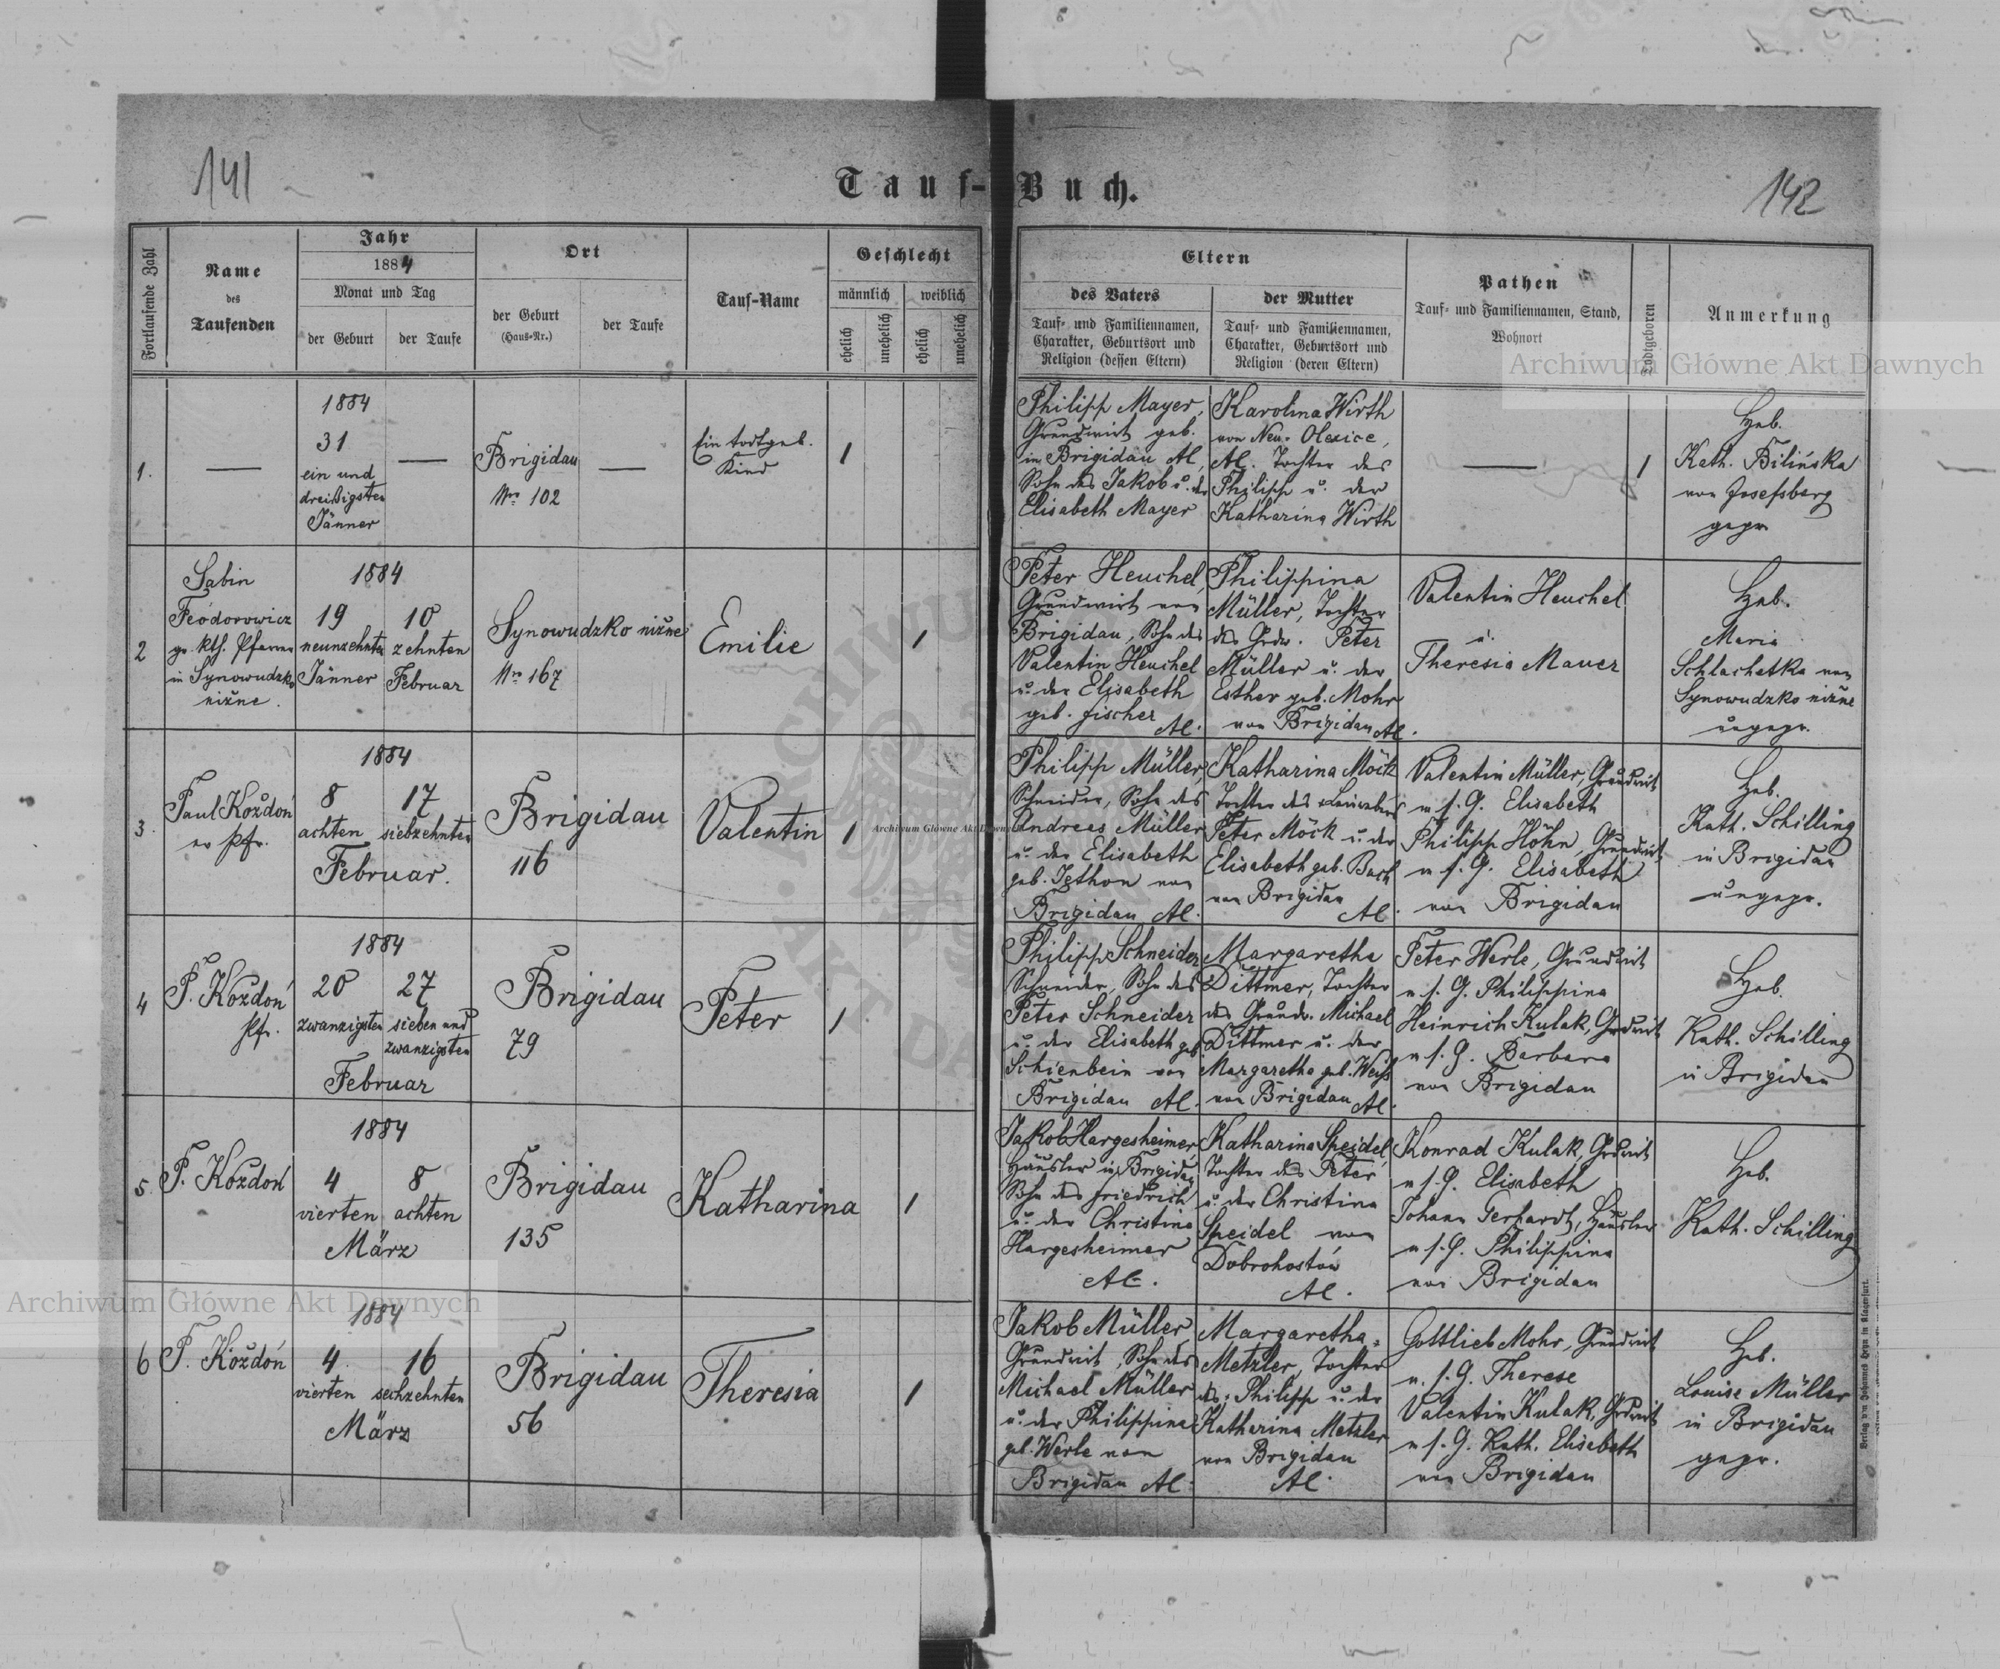 141
Tauf-Buch.
142
Fortlaufende Zahl
Name
des
Taufenden
Jahr
1884
Monat und Tag
der Geburt
der Taufe
Ort
der Geburt
(Haus-Nr.)
der Taufe
Tauf-Name
Geschlecht
männlich
weiblich
ehelich
unehelich
ehelich
unehelich
Eltern
des Vaters
Tauf- und Familiennamen,
Charakter, Geburtsort und
Religion (dessen Eltern)
der Mutter
Tauf- und Familiennamen,
Charakter, Geburtsort und
Religion (deren Eltern)
Pathen
Tauf- und Familiennamen, Stand,
Wohnort
Todtgeboren
Anmerkung
1.
—
1884
31
ein und
dreißigsten
Jänner
—
Brigidau
Nro 102
—
Ein todtgeb.
Kind
1
Philipp Mayer,
Grundwirt geb.
in Brigidau Al,
Sohn des Jakob u. der
Elisabeth Mayer
Karolina Wirth
von Neu-Olexice,
Al. Tochter des
Philipp u. der
Katharina Wirth
—
1
Heb.
Kath. Bilińska
von Josefsberg
gepr
2
Sabin
Feodorowicz
gr. kth. Pfarrer
in Synowudzko
niżne.
1884
19
neunzehnten
Jänner
10
zehnten
Februar
Synowudzko niżne
Nro 167
Emilie
1
Peter Heuchel,
Grundwirt von
Brigidau, Sohn des
Valentin Heuchel
u. der Elisabeth
geb. Fischer
Al.
Philippina
Müller, Tochter
des Grdw. Peter
Müller u. der
Esther geb. Mohr
von Brigidau Al.
Valentin Heuchel
u.
Theresia Mauer
Heb.
Maria
Schlachetka von
Synowudzko niżne
ungepr.
3.
Paul Kożdoń
ev Pfr.
1884
8
achten
17
siebzehnten
Februar.
Brigidau
116
Valentin
1
Philipp Müller,
Schneider, Sohn des
Andreas Müller
u. der Elisabeth
geb. Jethon von
Brigidau Al.
Katharina Möck
Tochter des
Peter Möck u. der
Elisabeth geb. Bach
von Brigidau
Al.
Valentin Müller, Grundwirt
u. s. G. Elisabeth
Philipp Höhn, Grundwirt
u. s. G. Elisabeth
von Brigidau
Heb.
Kath. Schilling
in Brigidau
ungepr.
4
P. Kożdoń
Pfr.
1884
20
zwanzigsten
27
sieben und
zwanzigsten
Februar
Brigidau
79
Peter
1
Philipp Schneider
Schneider, Sohn des
Peter Schneider
u. der Elisabeth geb
Schienbein von
Brigidau Al.
Margaretha
Dittmer, Tochter
des Grundw. Michael
Dittmer u. der
Margaretha geb. Weiß
von Brigidau Al.
Peter Werle, Grundwirt
u. s. G. Philippina
Heinrich Kulak, Grdwirt
u s. G. Barbara
von Brigidau
Heb.
Kath. Schilling
in Brigidau
5
P. Kożdoń
1884
4
vierten
8
achten
März
Brigidau
135
Katharina
1
Jakob Hargesheimer,
Häusler in Brigidau
Sohn des Friedrich
u. der Christina
Hargesheimer
Al.
Katharina Speidel,
Tochter des Peter
u. der Christina
Speidel von
Dobrohostów
Al.
Konrad Kulak, Grdwirt
u s. G. Elisabeth
Johann Gerhardt, Häusler
u s. G. Philippina
von Brigidau
Heb.
Kath. Schilling
6
P. Kożdoń
1884
4
vierten
16
sechzehnten
März
Brigidau
56
Theresia
1
Jakob Müller,
Grundwirt, Sohn des
Michael Müller
u. der Philippina
geb. Werle von
Brigidau Al.
Margaretha
Metzler, Tochter
des Philipp u. der
Katharina Metzler
von Brigidau
Al.
Gottlieb Mohr, Grundwirt
u. s. G. Therese
Valentin Kulak, Grdwirt
u s. G. Kath. Elisabeth
von Brigidau
Heb.
Louise Müller
in Brigidau
gepr.
Verlag von Johannes Heyn in Klagenfurt.
Archiwum Główne Akt Dawnych
Archiwum Główne Akt Dawnych
Archiwum Główne Akt Dawnych